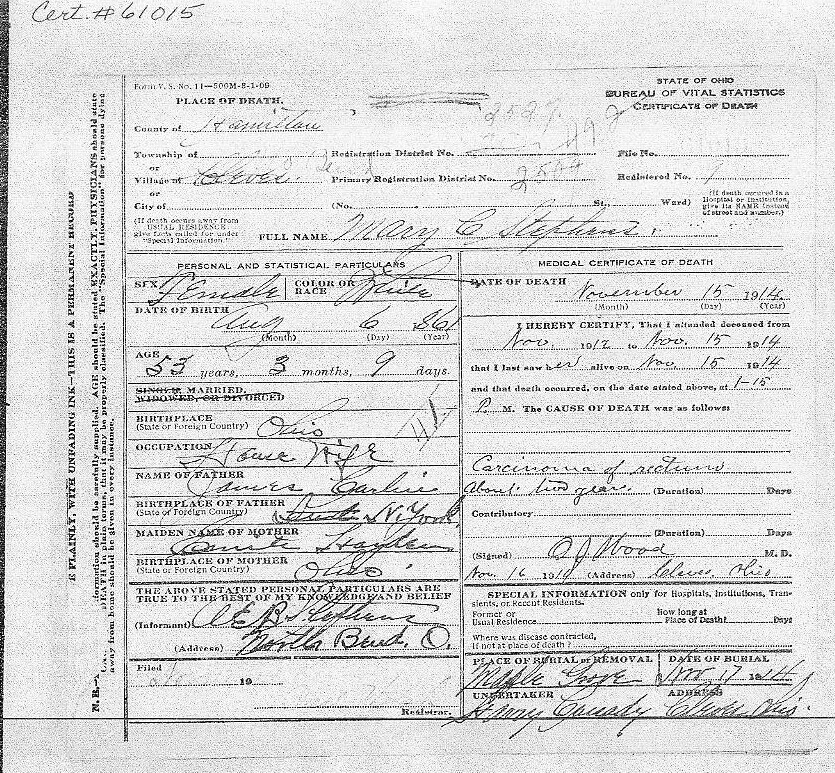 Cert. # 61015
Form V. S. No. 11—500M-8-1-09
STATE OF OHIO
BUREAU OF VITAL STATISTICS
CERTIFICATE OF DEATH
PLACE OF DEATH.
County of Hamilton
Township of
Registration District No.
File No.
or
Village of Cleves.
Primary Registration District No.
Registered No. 1
or
City of
(No.
St.,
Ward)
(If death occurred in a Hospital or Institution, give its NAME instead of street and number.)
(If death occurs away from USUAL RESIDENCE give facts called for under "Special Information.")
FULL NAME Mary C Stephens.
PERSONAL AND STATISTICAL PARTICULARS
SEX Female
COLOR OR RACE White
DATE OF BIRTH
Aug 6 1861
(Month) (Day) (Year)
AGE
53 years, 3 months, 9 days.
SINGLE MARRIED,
WIDOWED, OR DIVORCED
BIRTHPLACE
(State or Foreign Country) Ohio
OCCUPATION House Wife
NAME OF FATHER James Carlin
BIRTHPLACE OF FATHER
(State or Foreign Country) N. York
MAIDEN NAME OF MOTHER
Hayden
BIRTHPLACE OF MOTHER
(State or Foreign Country) Ohio
THE ABOVE STATED PERSONAL PARTICULARS ARE
TRUE TO THE BEST OF MY KNOWLEDGE AND BELIEF
(Informant) E B Stephens
(Address) North Bend, O.
Filed
19
Registrar.
MEDICAL CERTIFICATE OF DEATH
DATE OF DEATH
November 15 1914
(Month) (Day) (Year)
I HEREBY CERTIFY, That I attended deceased from
Nov. 1912 to Nov. 15 1914
that I last saw her alive on Nov 15 1914
and that death occurred, on the date stated above, at 1-15
P. M. The CAUSE OF DEATH was as follows:
Carcinoma of rectum
About two years (Duration) Days
Contributory
(Duration) Days
(Signed) O J Wood M. D.
Nov. 16 1914 (Address) Cleves, Ohio
SPECIAL INFORMATION only for Hospitals, Institutions, Transients, or Recent Residents.
Former or
Usual Residence
How long at
Place of Death?
Days
Where was disease contracted,
if not at place of death?
PLACE OF BURIAL or REMOVAL
Maple Grove
DATE OF BURIAL
Nov. 17 1914
UNDERTAKER
Henry
ADDRESS
Cleves, Ohio.